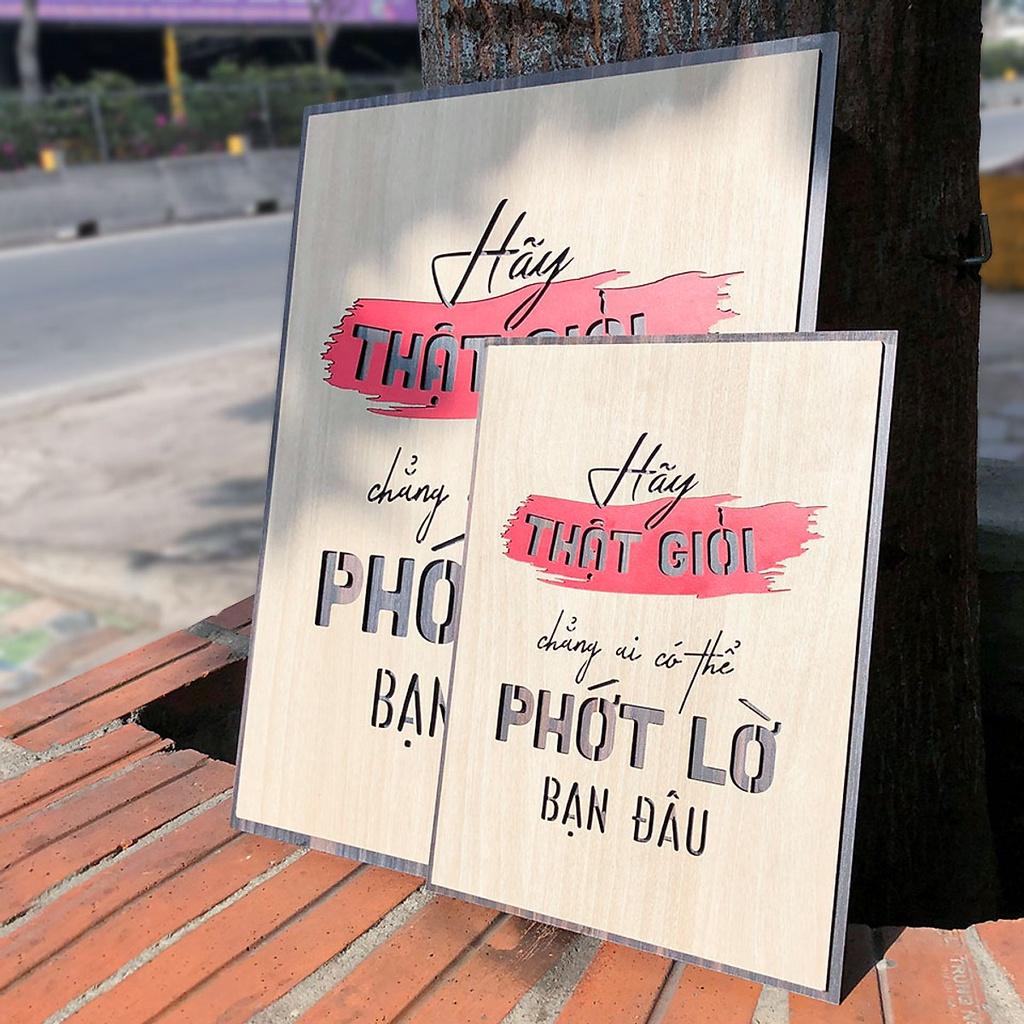 Hãy
THẬT GIỎI
chẳng
PHỚ
BẠN
Hãy
THẬT GIỎI
chẳng ai có thể
PHỚT LỜ
BẠN ĐÂU